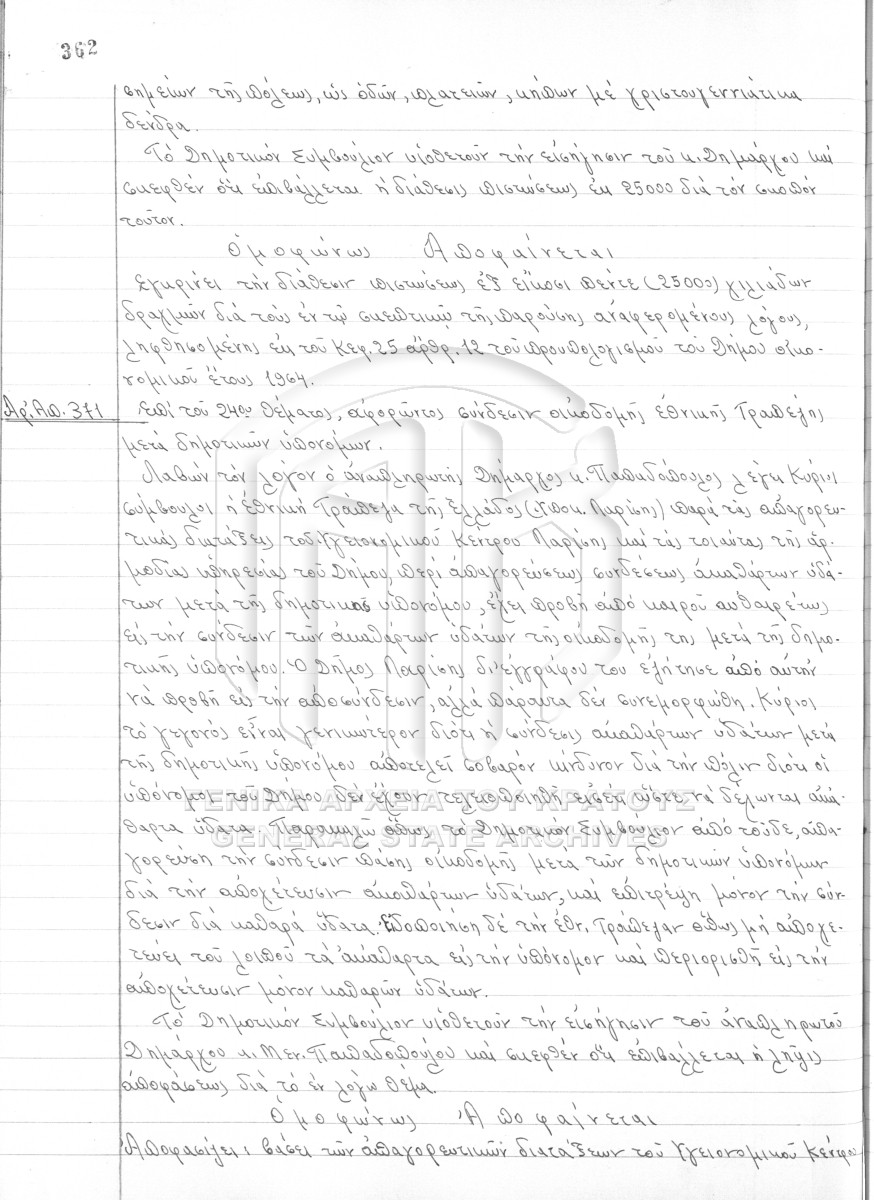 362
σημείων τῆς πόλεως, ὡς ὁδῶν, πλατειῶν, κήπων μέ χριστουγεννιάτικα
δένδρα.
Τό Δημοτικόν Συμβούλιον υἱοθετοῦν τήν εἰσήγησιν τοῦ κ. Δημάρχου καί
σκεφθέν ὅτι ἐπιβάλλεται ἡ διάθεσις πιστώσεως ἐκ 25000 διά τόν σκοπόν
τοῦτον.
Ὁμοφώνως Ἀποφαίνεται
Ἐγκρίνει τήν διάθεσιν πιστώσεως ἐξ εἴκοσι πέντε (25000) χιλιάδων
δραχμῶν διά τούς ἐν τῷ σκεπτικῷ τῆς παρούσης ἀναφερομένους λόγους,
ληφθησομένης ἐκ τοῦ Κεφ. 25 ἄρθρ. 12 τοῦ προυπολογισμοῦ τοῦ Δήμου οἰκο-
νομικοῦ ἔτους 1964.
Ἀρ. Ἀπ. 371
Ἐπί τοῦ 24ου θέματος, ἀφορῶντος σύνδεσιν οἰκοδομῆς Ἐθνικῆς Τραπέζης
μετά δημοτικῶν ὑπονόμων.
Λαβών τόν λόγον ὁ ἀναπληρωτής Δήμαρχος κ. Παπαδόπουλος λέγει Κύριοι
σύμβουλοι ἡ Ἐθνική Τράπεζα τῆς Ἑλλάδος (Ὑποκ. Λαρίσης) παρά τάς ἀπαγορευ-
τικάς διατάξεις τοῦ Ὑγειονομικοῦ Κέντρου Λαρίσης καί τάς τοιαύτας τῆς ἁρ-
μοδίας ὑπηρεσίας τοῦ Δήμου, περί ἀπαγορεύσεως συνδέσεως ἀκαθάρτων ὑδά-
των μετά τῆς δημοτικῆς ὑπονόμου, ἔχει προβῆ ἀπό καιροῦ αὐθαιρέτως
εἰς τήν σύνδεσιν τῶν ἀκαθάρτων ὑδάτων τῆς οἰκοδομῆς της μετά τῆς δημο-
τικῆς ὑπονόμου. Ὁ Δῆμος Λαρίσης δι' ἐγγράφου του ἐζήτησε ἀπό αὐτήν
νά προβῆ εἰς τήν ἀποσύνδεσιν, ἀλλά πάραυτα δέν συνεμορφώθη. Κύριοι
τό γεγονός εἶναι γενικώτερον διότι ἡ σύνδεσις ἀκαθάρτων ὑδάτων μετά
τῆς δημοτικῆς ὑπονόμου ἀποτελεῖ σοβαρόν κίνδυνον διά τήν πόλιν διότι οἱ
ὑπόνομοι τοῦ Δήμου δέν ἔχουν τεχνοποιηθῆ εἰσέτι ὥστε νά δέχωνται ἀκά-
θαρτα ὕδατα. Παρακαλῶ ὅπως τό Δημοτικόν Συμβούλιον ἀπό τοῦδε, ἀπα-
γορεύση τήν σύνδεσιν πάσης οἰκοδομῆς μετά τῶν δημοτικῶν ὑπονόμων
διά τήν ἀποχέτευσιν ἀκαθάρτων ὑδάτων, καί ἐπιτρέψη μόνον τήν σύν-
δεσιν διά καθαρά ὕδατα. Εἰδοποιήση δέ τήν Ἐθν. Τράπεζαν ὅπως μή ἀποχε-
τεύει τοῦ λοιποῦ τά ἀκάθαρτα εἰς τήν ὑπόνομον καί περιορισθῆ εἰς τήν
ἀποχέτευσιν μόνον καθαρῶν ὑδάτων.
Τό Δημοτικόν Συμβούλιον υἱοθετοῦν τήν εἰσήγησιν τοῦ ἀναπληρωτοῦ
Δημάρχου κ. Μεν. Παπαδοπούλου καί σκεφθέν ὅτι ἐπιβάλλεται ἡ λῆψις
ἀποφάσεως διά τό ἐν λόγω θέμα.
Ὁμοφώνως Ἀποφαίνεται
Ἀποφασίζει: βάσει τῶν ἀπαγορευτικῶν διατάξεων τοῦ Ὑγειονομικοῦ Κέντρου
ΓΕΝΙΚΑ ΑΡΧΕΙΑ ΤΟΥ ΚΡΑΤΟΥΣ
GENERAL STATE ARCHIVES